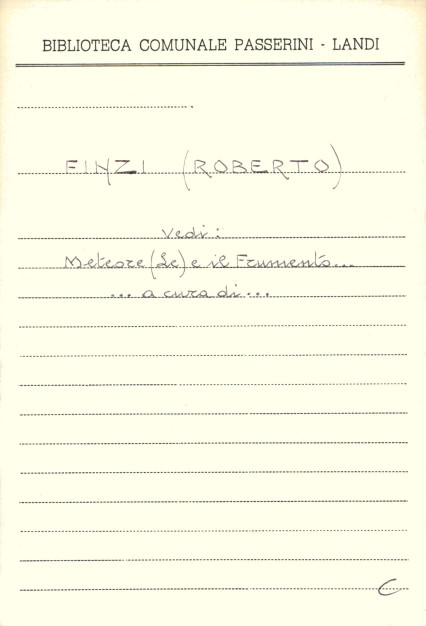 BIBLIOTECA COMUNALE PASSERINI - LANDI
FINZI (ROBERTO)
Vedi:
Meteore (Le) e il Frumento...
... a cura di ...
C